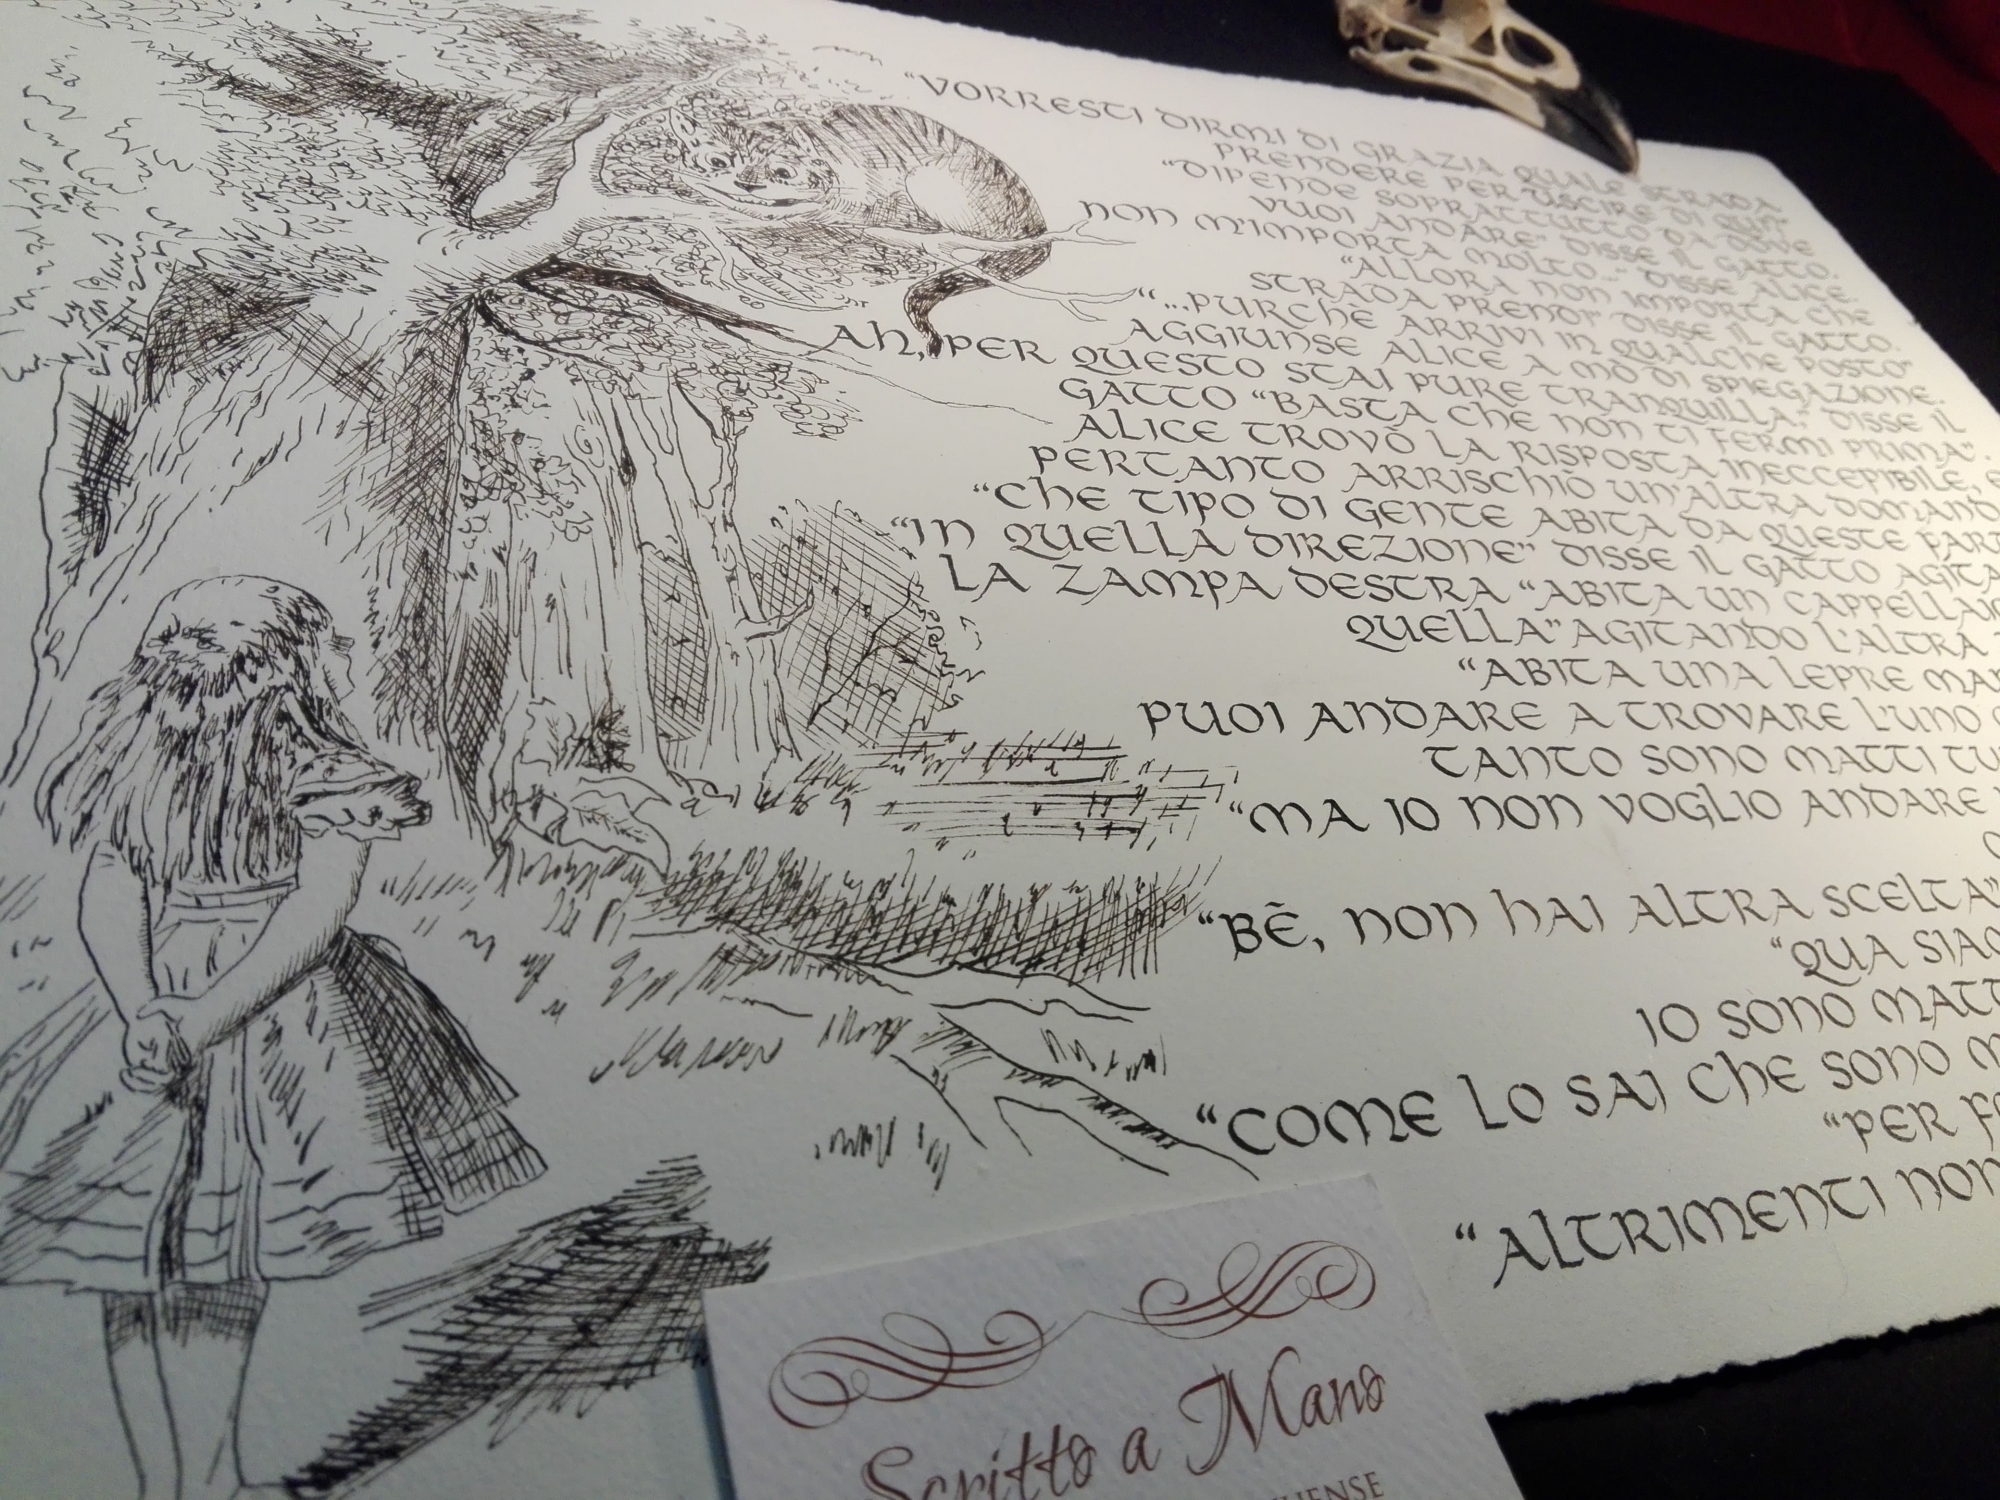 “VORRESTI DIRMI DI GRAZIA QUALE STRADA
PRENDERE PER USCIRE DI QUI?”
“DIPENDE SOPRATTUTTO DA DOVE
VUOI ANDARE” DISSE IL GATTO.
NON M'IMPORTA MOLTO...” DISSE ALICE.
“ALLORA NON IMPORTA CHE
STRADA PRENDI” DISSE IL GATTO.
“...PURCHÈ ARRIVI IN QUALCHE POSTO”
AGGIUNSE ALICE A MO' DI SPIEGAZIONE.
AH, PER QUESTO STAI PURE TRANQUILLA.” DISSE IL
GATTO “BASTA CHE NON TI FERMI PRIMA”.
ALICE TROVÒ LA RISPOSTA INECCEPIBILE, E
PERTANTO ARRISCHIÒ UN'ALTRA DOMAND
“CHE TIPO DI GENTE ABITA DA QUESTE PART
“IN QUELLA DIREZIONE” DISSE IL GATTO AGITA
LA ZAMPA DESTRA “ABITA UN CAPPELLAI
QUELLA” AGITANDO L'ALTRA
“ABITA UNA LEPRE MAR
PUOI ANDARE A TROVARE L'UNO
TANTO SONO MATTI TU
“MA IO NON VOGLIO ANDARE
“BÈ, NON HAI ALTRA SCELTA”
“QUA SIAM
IO SONO MATT
“COME LO SAI CHE SONO M
“PER F
“ALTRIMENTI NON
Scritto a Mano